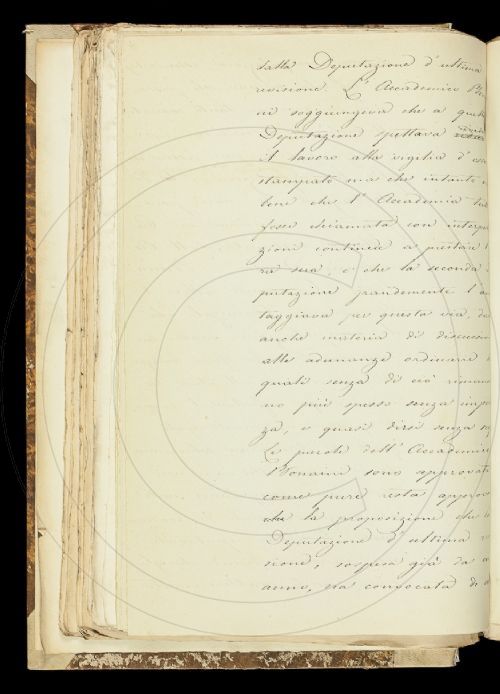 dalla Deputazione d'ultima
revisione. L'Accademico
vi soggiungeva che a questa
Deputazione spettava
il lavoro alla vigilia d'
stampato ma che intanto
bene che l'Accademia
fosse chiamata con
zioni continue a prestare
ra sua, e che la seconda
putazione grandemente
taggiava per questa via,
anche materia di
alle adunanze ordinarie
quali senza di ciò
no più spesso senza
za, e quasi dirsi senza
Le parole dell'Accademico
Bonaini sono approvate
come pure resta
la proposizione che
Deputazione d'ultima
sione, sospesa già da
anno, sia convocata di